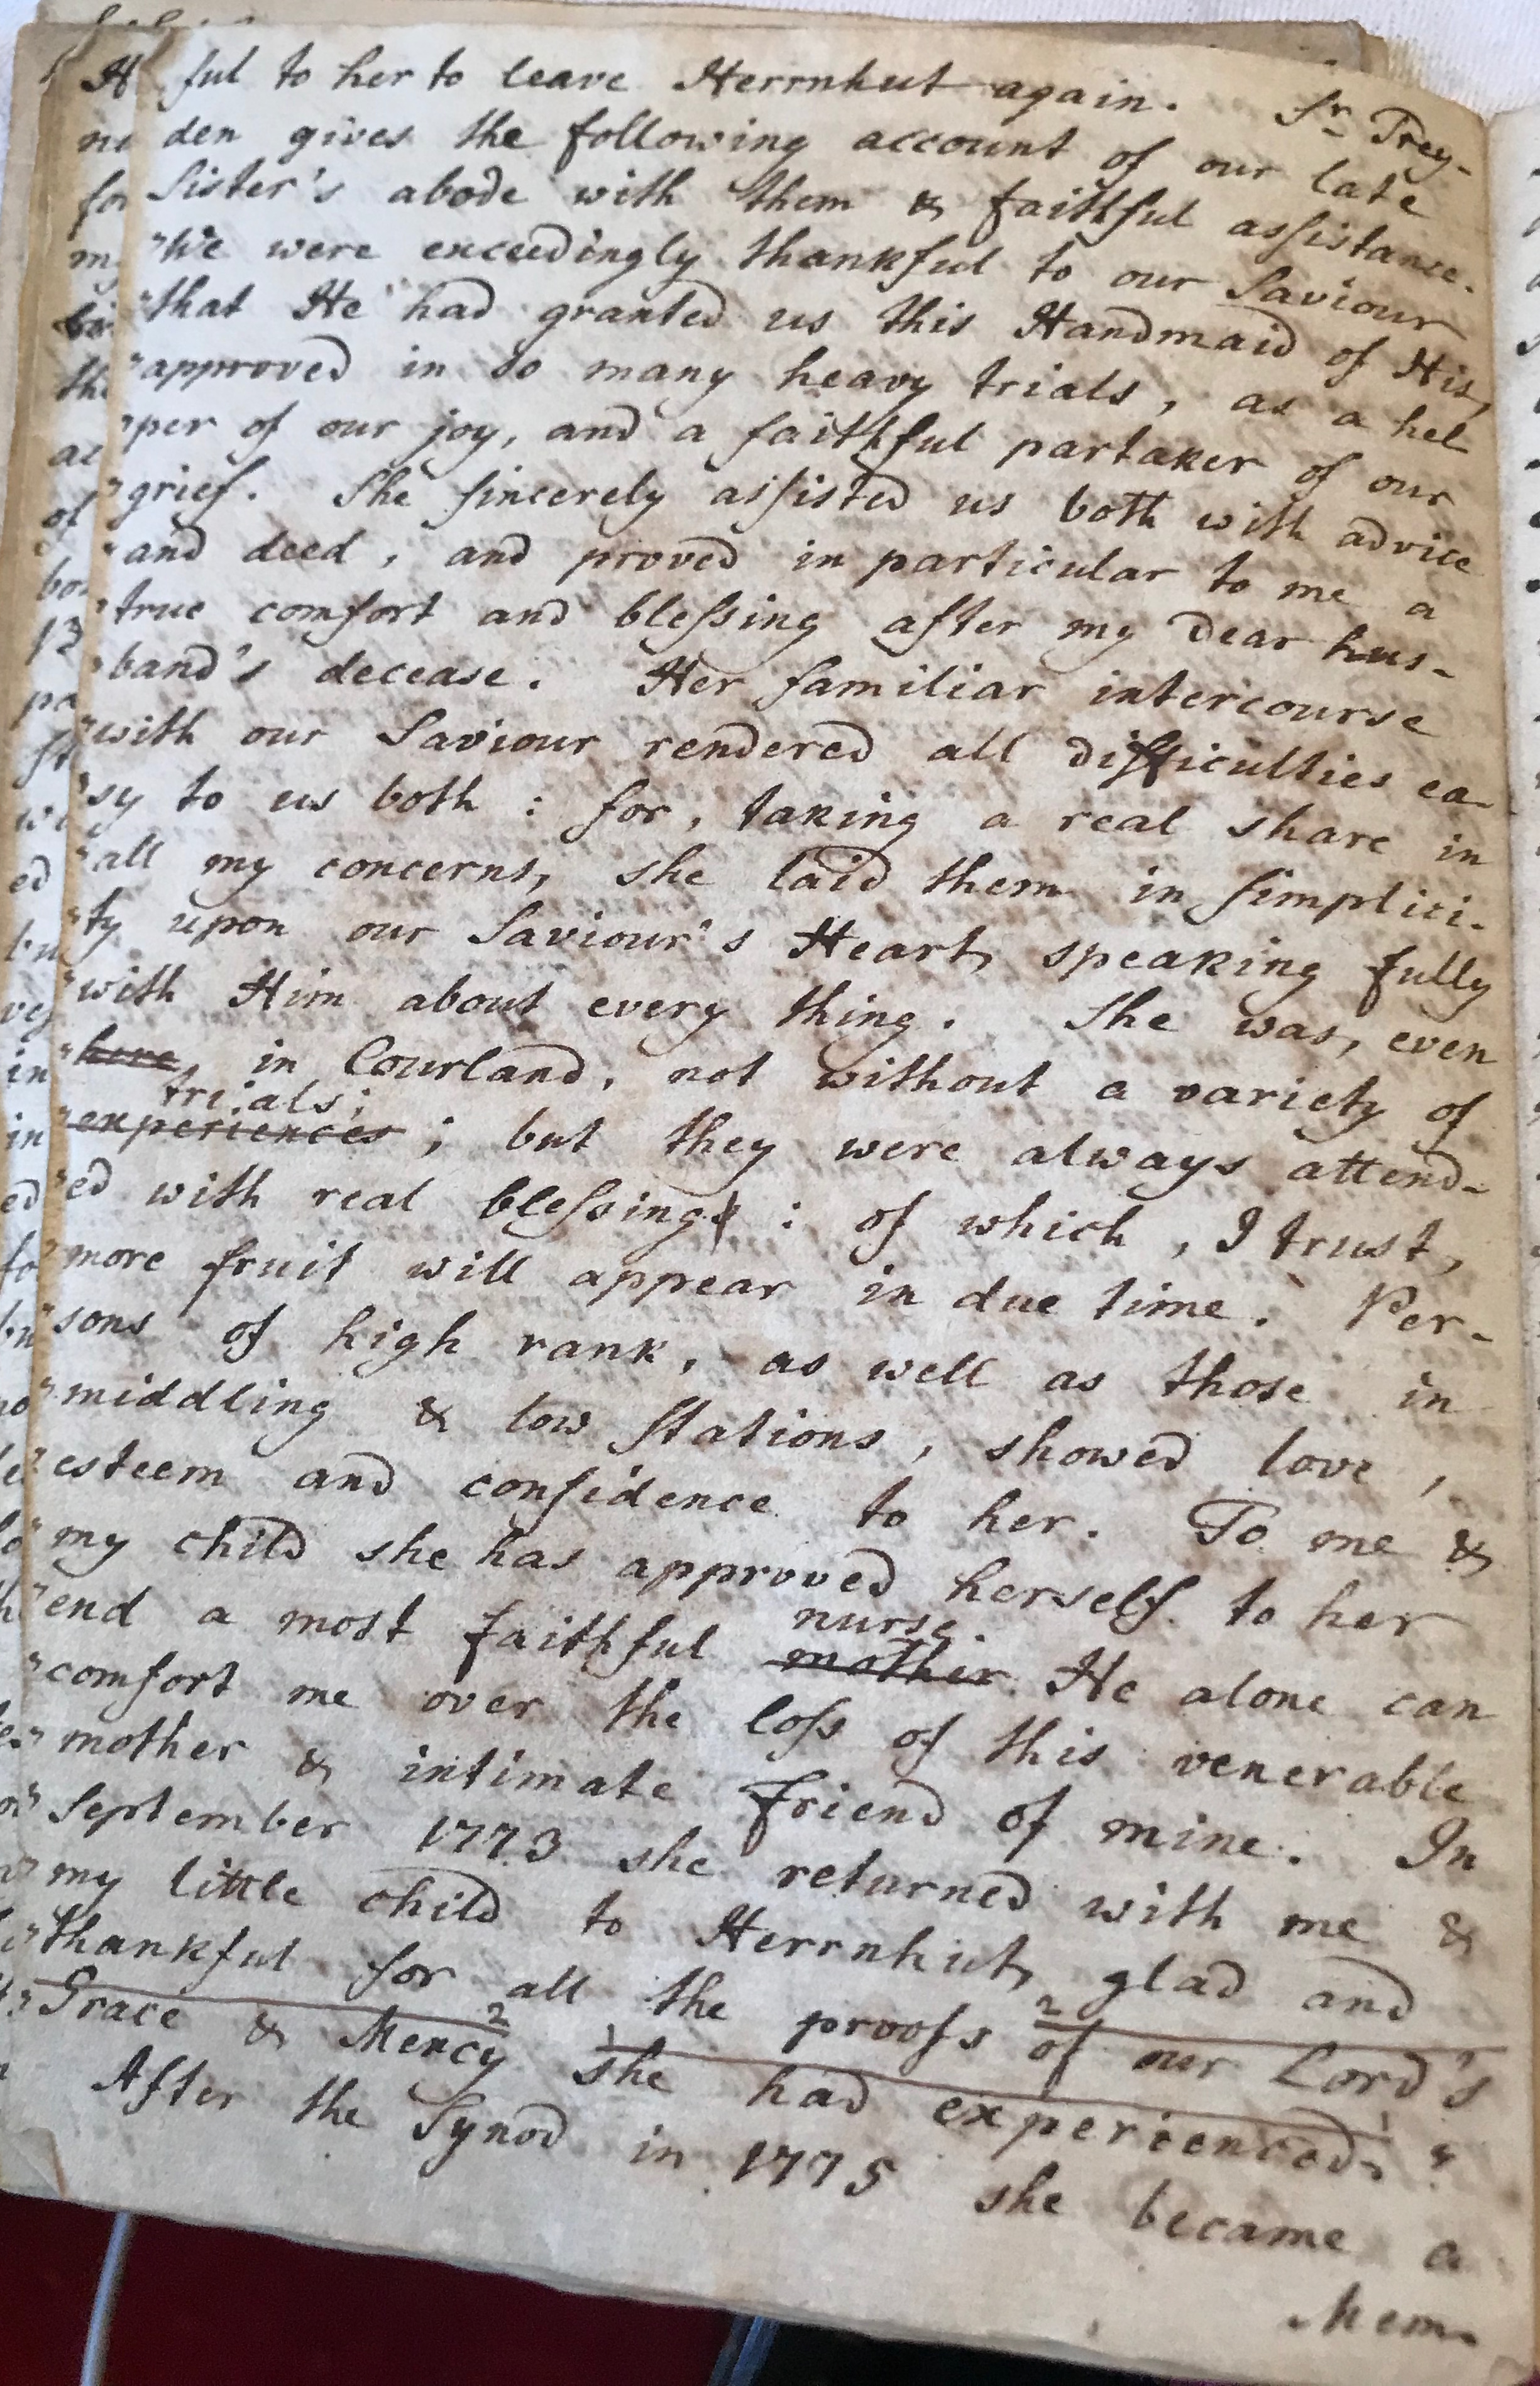 ful to her to leave Herrnhut again. Sr. Trey-
den gives the following account of our late
Sister's abode with them & faithful assistance.
"We were exceedingly thankful to our Saviour
"that He had granted us this Handmaid of His,
"approved in so many heavy trials, as a hel
"per of our joy, and a faithful partaker of our
"grief. She sincerely assisted us both with advice
"and deed, and proved in particular to me a
"true comfort and blessing after my dear hus-
"band's decease. Her familiar intercourse
"with our Saviour rendered all difficulties ea-
"sy to us both: for, taking a real share in
"all my concerns, she laid them in simplici-
"ty upon our Saviour's Heart, speaking fully
"with Him about every thing. She was, even
"here, in Courland, not without a variety of
trials;
"experiences; but they were always attend-
"ed with real blessings: of which, I trust,
"more fruit will appear in due time. Per-
"sons of high rank, as well as those in
"middling & low stations, showed love,
"esteem and confidence to her. To me &
"my child she has approved herself to her
nurse
"end a most faithful mother. He alone can
"comfort me over the loss of this venerable
"mother & intimate friend of mine. In
"September 1773 she returned with me &
"my little child to Herrnhut, glad and
"thankful for all the proofs 2 of our Lord's
"Grace & Mercy 2 1 she had experienced, 1 "
After the Synod in 1775 she became a
Mem-